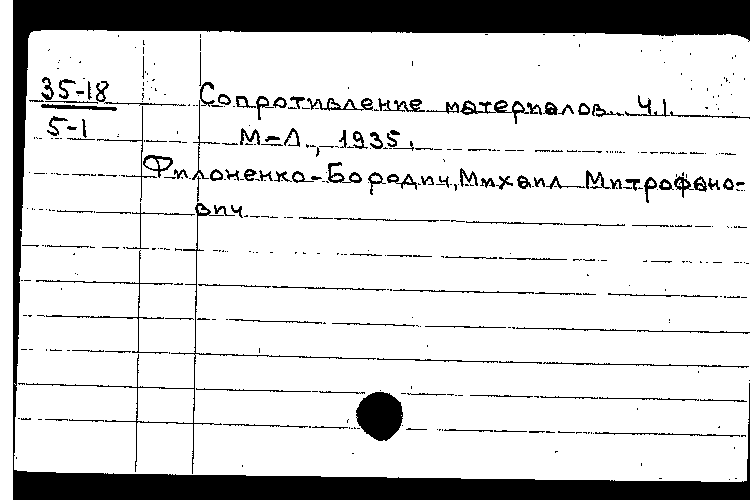 35-18
5-1
Сопротивление материалов... Ч.1.
М-Л., 1935.
Филоненко-Бородич, Михаил Митрофано-
вич